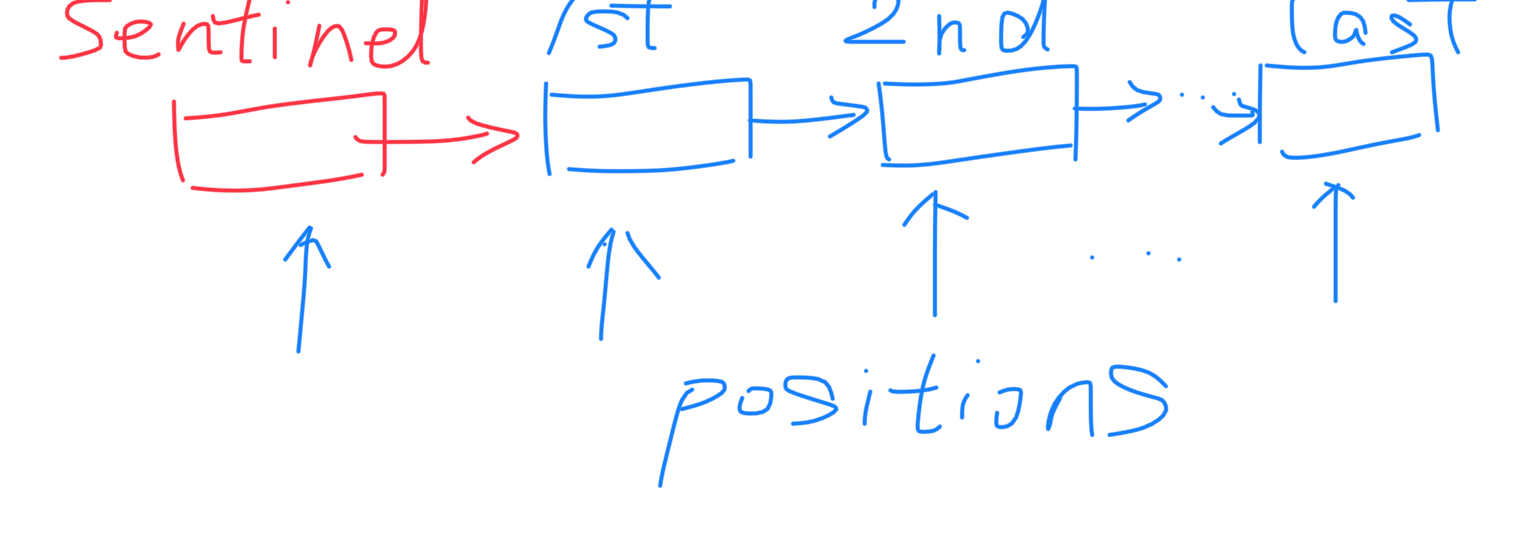 Sentinel 1st 2nd ... last
...
positions